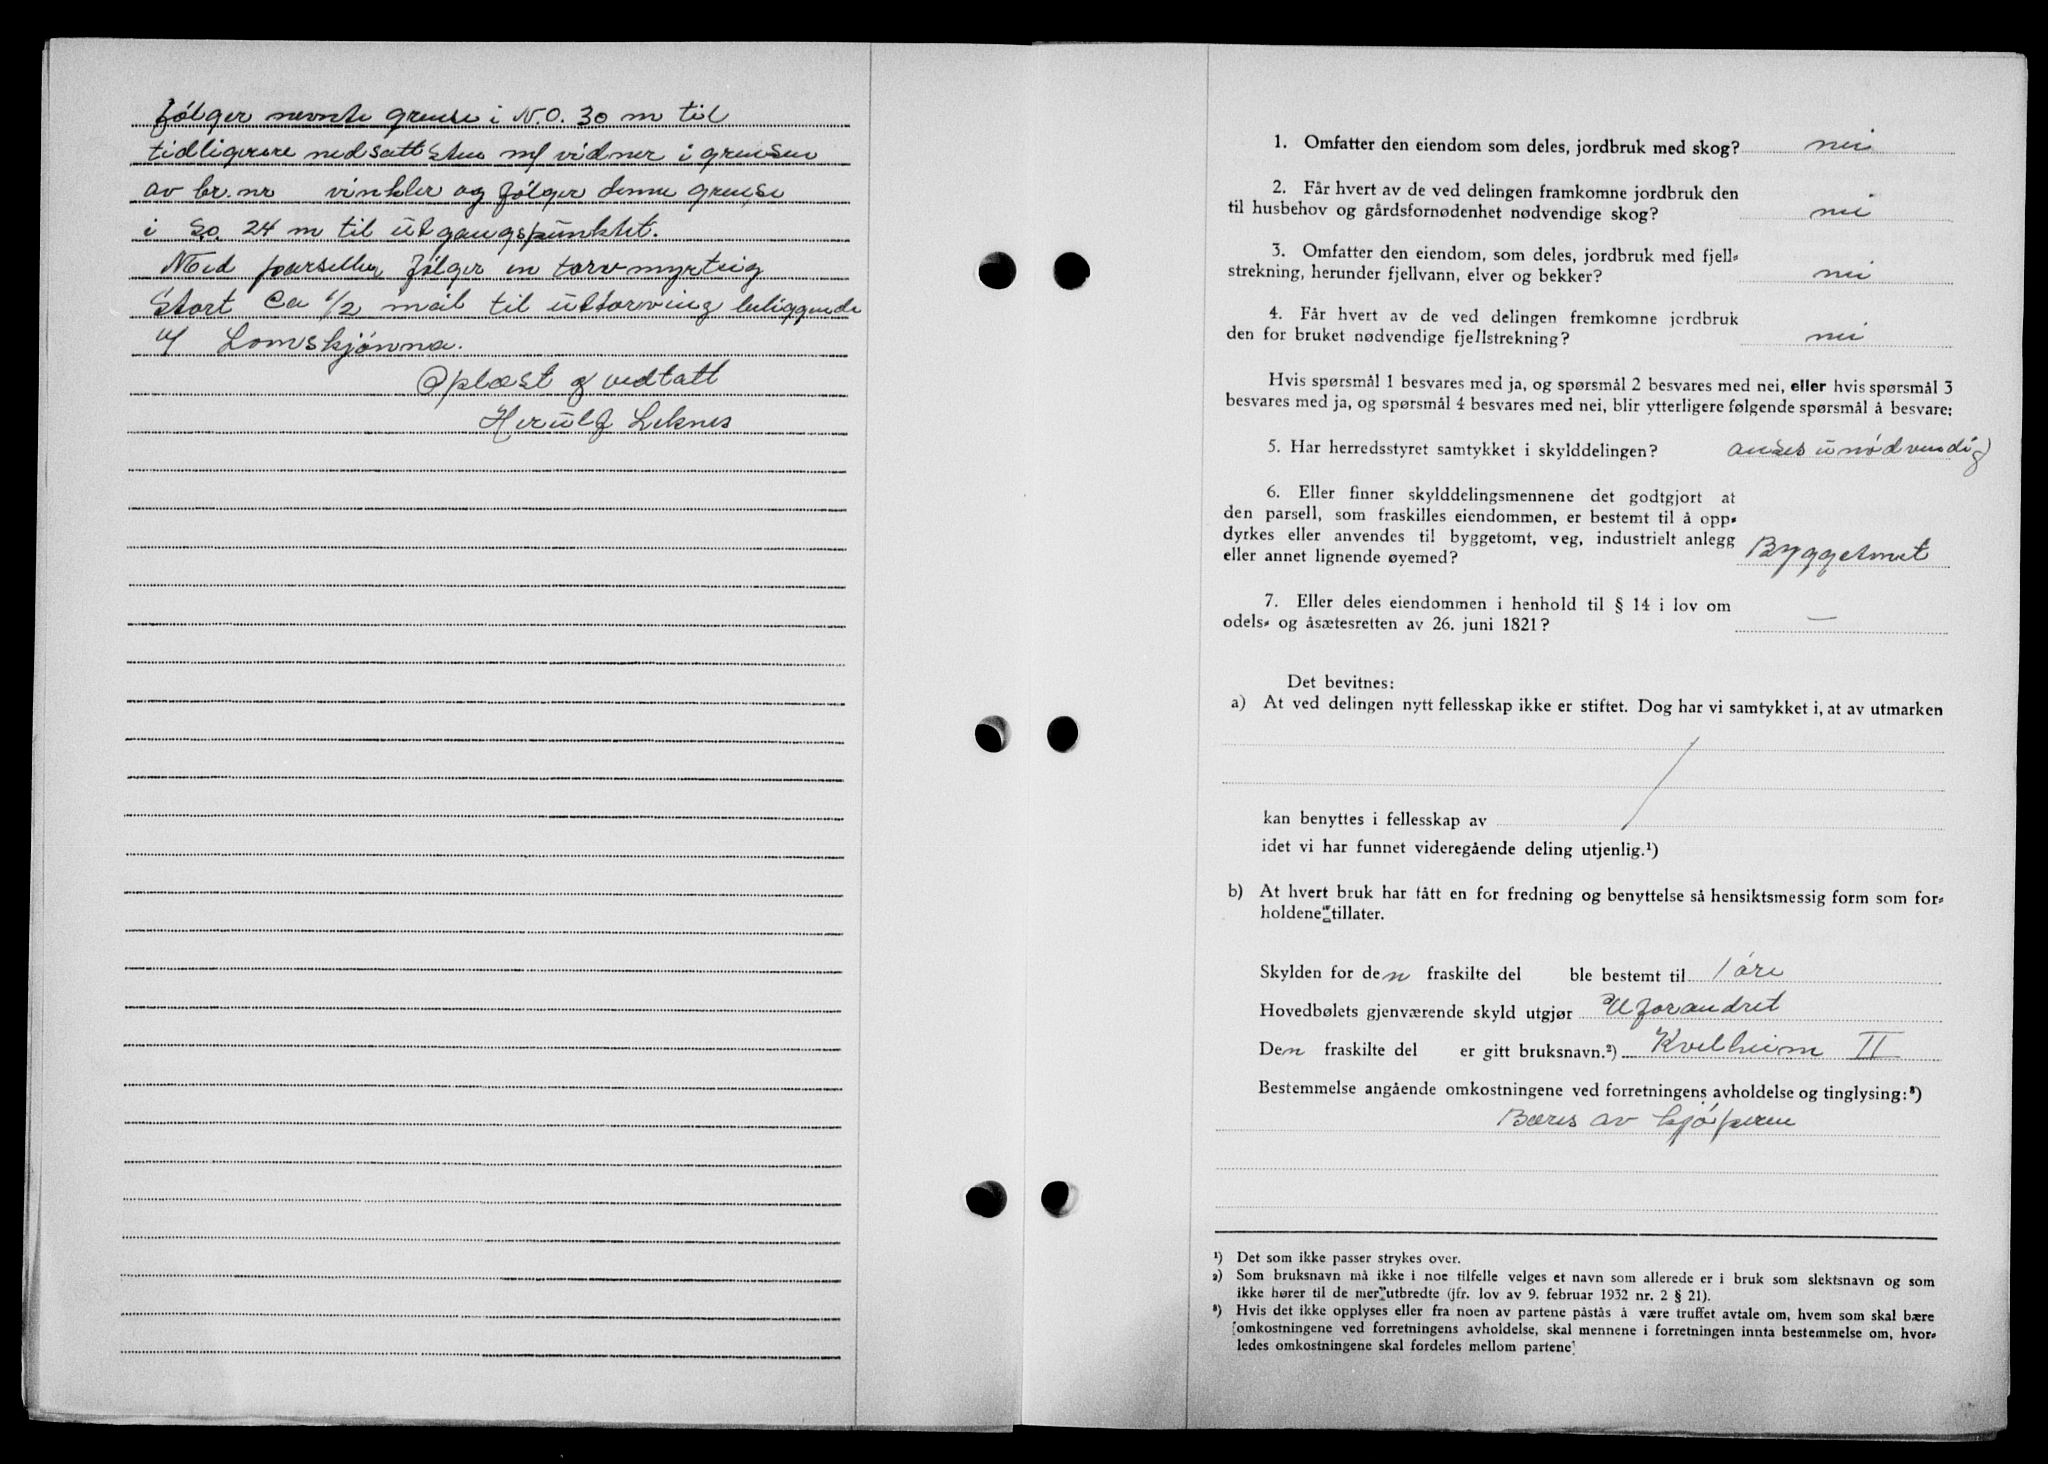 følger nevnte grense i N.O. 30 m til
tidligere nedsatt sten m/ vidner i grensen
av br. nr vinkler og følger denne grense
i S.o. 24 m til utgangspunktet.
Med parsellen følger en torvmyrteig
Stort Ca 1/2 mål til uttorving beliggende
v/ Lomskjønna.
Oplæst og vedtatt
Herulf Leknes
1. Omfatter den eiendom som deles, jordbruk med skog? nei
2. Får hvert av de ved delingen framkomne jordbruk den
til husbehov og gårdsfornødenhet nødvendige skog? nei
3. Omfatter den eiendom, som deles, jordbruk med fjell-
strekning, herunder fjellvann, elver og bekker? nei
4. Får hvert av de ved delingen fremkomne jordbruk
den for bruket nødvendige fjellstrekning? nei
Hvis spørsmål 1 besvares med ja, og spørsmål 2 besvares med nei, eller hvis spørsmål 3
besvares med ja, og spørsmål 4 besvares med nei, blir ytterligere følgende spørsmål å besvare:
5. Har herredsstyret samtykket i skylddelingen? anses unødvendig
6. Eller finner skylddelingsmennene det godtgjort at
den parsell, som fraskilles eiendommen, er bestemt til å opp-
dyrkes eller anvendes til byggetomt, veg, industrielt anlegg
eller annet lignende øyemed? Byggetomt
7. Eller deles eiendommen i henhold til § 14 i lov om
odels- og åsætesretten av 26. juni 1821? —
Det bevitnes:
a) At ved delingen nytt fellesskap ikke er stiftet. Dog har vi samtykket i, at av utmarken
kan benyttes i fellesskap av
idet vi har funnet videregående deling utjenlig.¹)
b) At hvert bruk har fått en for fredning og benyttelse så hensiktsmessig form som for-
holdene tillater.
Skylden for den fraskilte del ble bestemt til 1 øre
Hovedbølets gjenværende skyld utgjør Uforandret
Den fraskilte del er gitt bruksnavn.²) Kvelheim II
Bestemmelse angående omkostningene ved forretningens avholdelse og tinglysing:³)
Bæres av kjøperen
¹) Det som ikke passer strykes over.
²) Som bruksnavn må ikke i noe tilfelle velges et navn som allerede er i bruk som slektsnavn og som
ikke hører til de mer utbredte (jfr. lov av 9. februar 1932 nr. 2 § 21).
³) Hvis det ikke opplyses eller fra noen av partene påstås å være truffet avtale om, hvem som skal bære
omkostningene ved forretningens avholdelse, skal mennene i forretningen innta bestemmelse om, hvor-
ledes omkostningene skal fordeles mellom partene